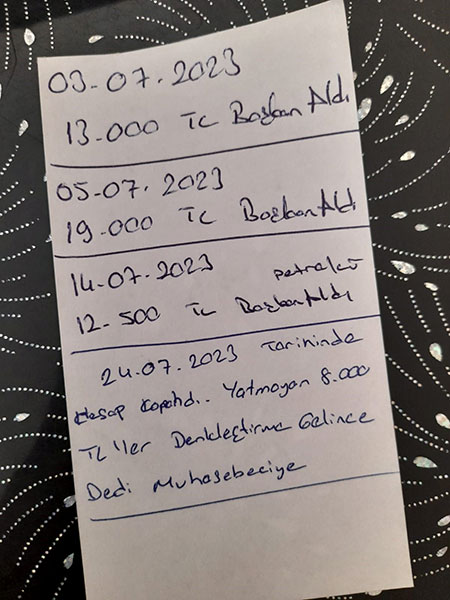 03-07.2023
13.000 TL Başkan Aldı
05-07.2023
19.000 TL Başkan Aldı
14-07.2023 petrolcü
12.500 TL Başkan Aldı
24.07.2023 Tarihinde
Hesap Kapatıldı.. Yatmayan 8.000
TL'ler Denkleştirme Gelince
Dedi Muhasebeciye